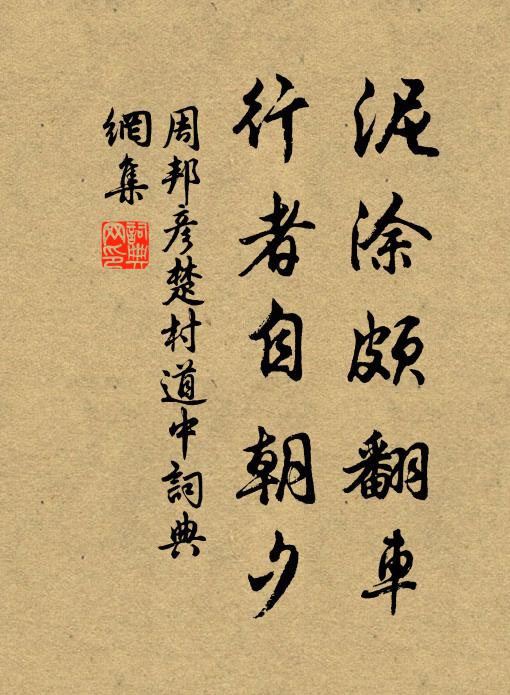 泥涂頗翻車
行者自朝夕
周邦彦楚村道中詞典
網集
詞典
网印